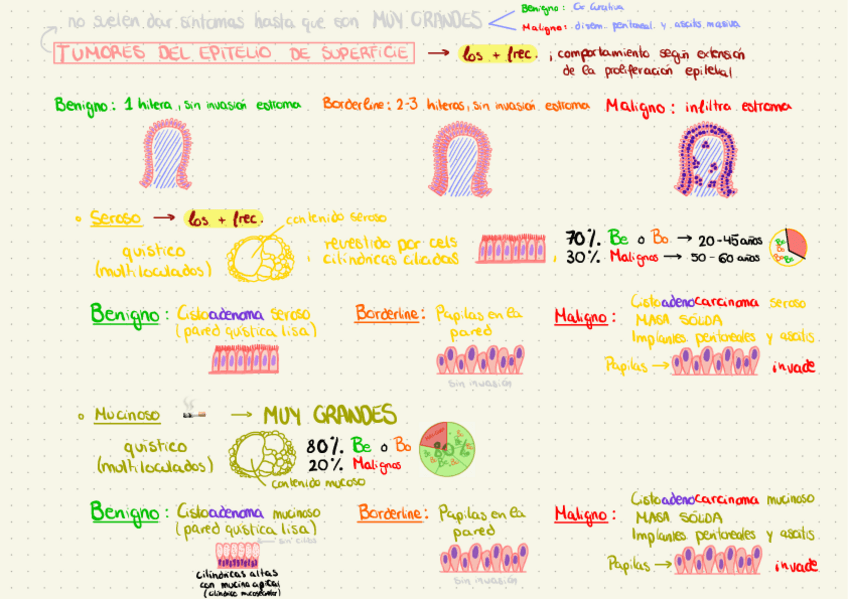 no suelen dar síntomas hasta que son MUY GRANDES
Benigno: Cx curativa
Maligno: disem. peritoneal y ascitis masiva
TUMORES DEL EPITELIO DE SUPERFICIE → los + frec. ; comportamiento según extensión
de la proliferación epitelial
Benigno: 1 hilera, sin invasión estroma
Borderline: 2-3 hileras, sin invasión estroma
Maligno: infiltra estroma
Seroso → los + frec.
contenido seroso
quístico
(multiloculados)
revestido por cels
cilíndricas ciliadas
70% Be o Bo → 20-45 años
30% Malignos → 50-60 años
Benigno: Cistoadenoma seroso
(pared quística lisa)
Borderline: Papilas en la
pared
sin invasión
Maligno: Cistoadenocarcinoma seroso
MASA SÓLIDA
Implantes peritoneales y ascitis
Papilas → invade
Mucinoso → MUY GRANDES
quístico
(multiloculados)
contenido mucoso
80% Be o Bo
20% Malignos
Benigno: Cistoadenoma mucinoso
(pared quística lisa)
sin cilios
cilíndricas altas
con mucina apical
Borderline: Papilas en la
pared
sin invasión
Maligno: Cistoadenocarcinoma mucinoso
MASA SÓLIDA
Implantes peritoneales y ascitis
Papilas → invade